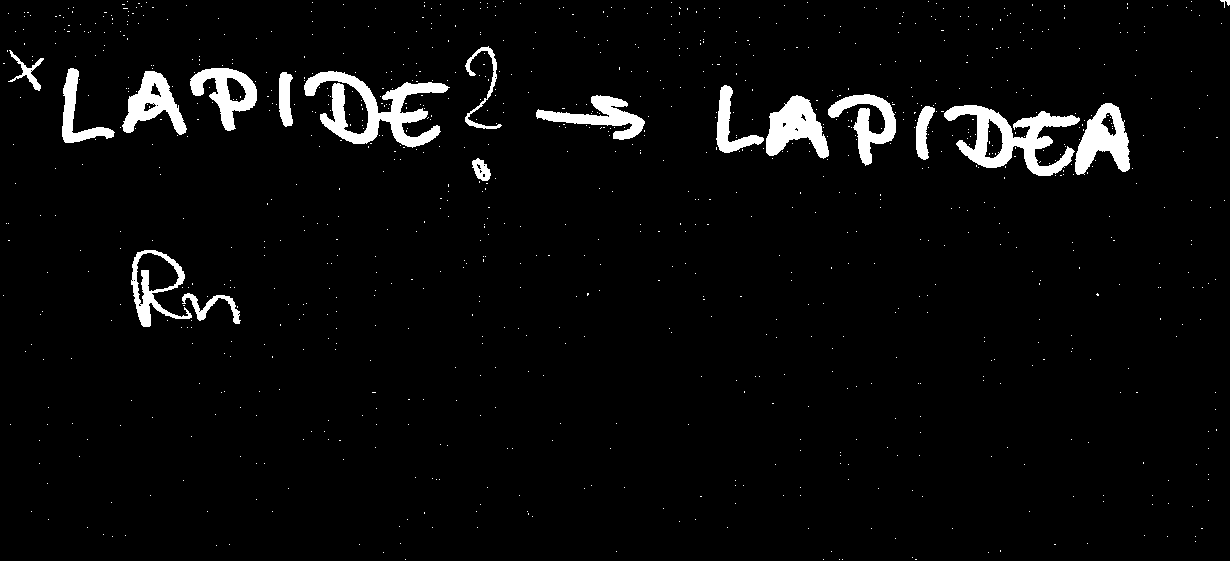 × LAPIDE? → LAPIDEA
Rn